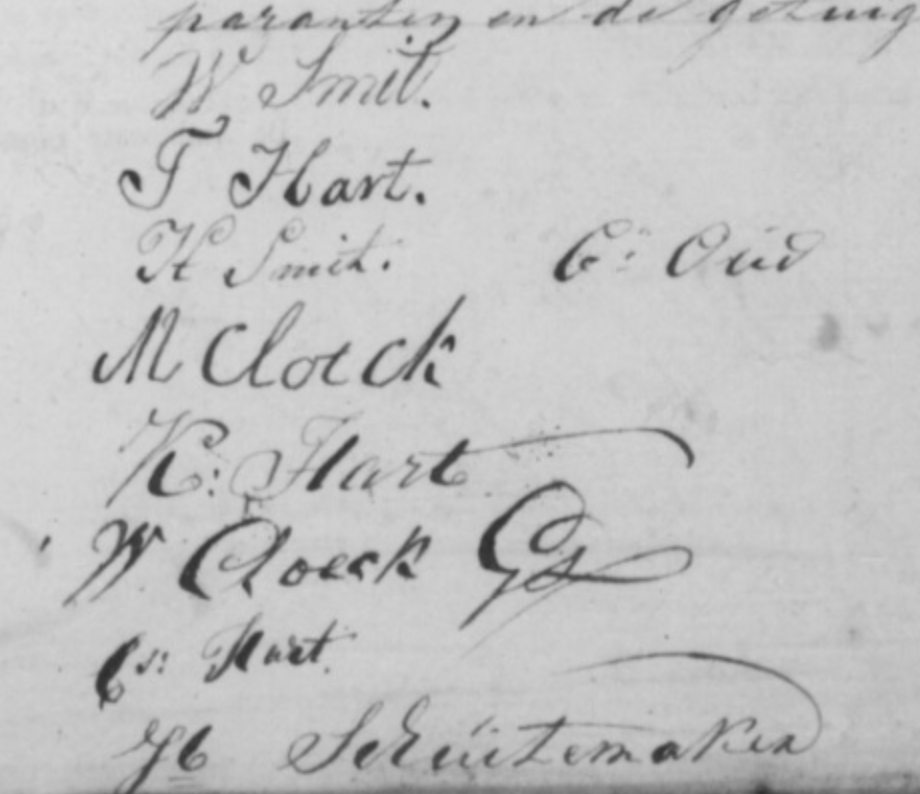 paranten en de getuig
W Smit.
T Hart.
K Smit. C: Oud
M Cloeck
K: Hart
W Cloeck Gz
Cs: Hart
Jb Schuitemaker